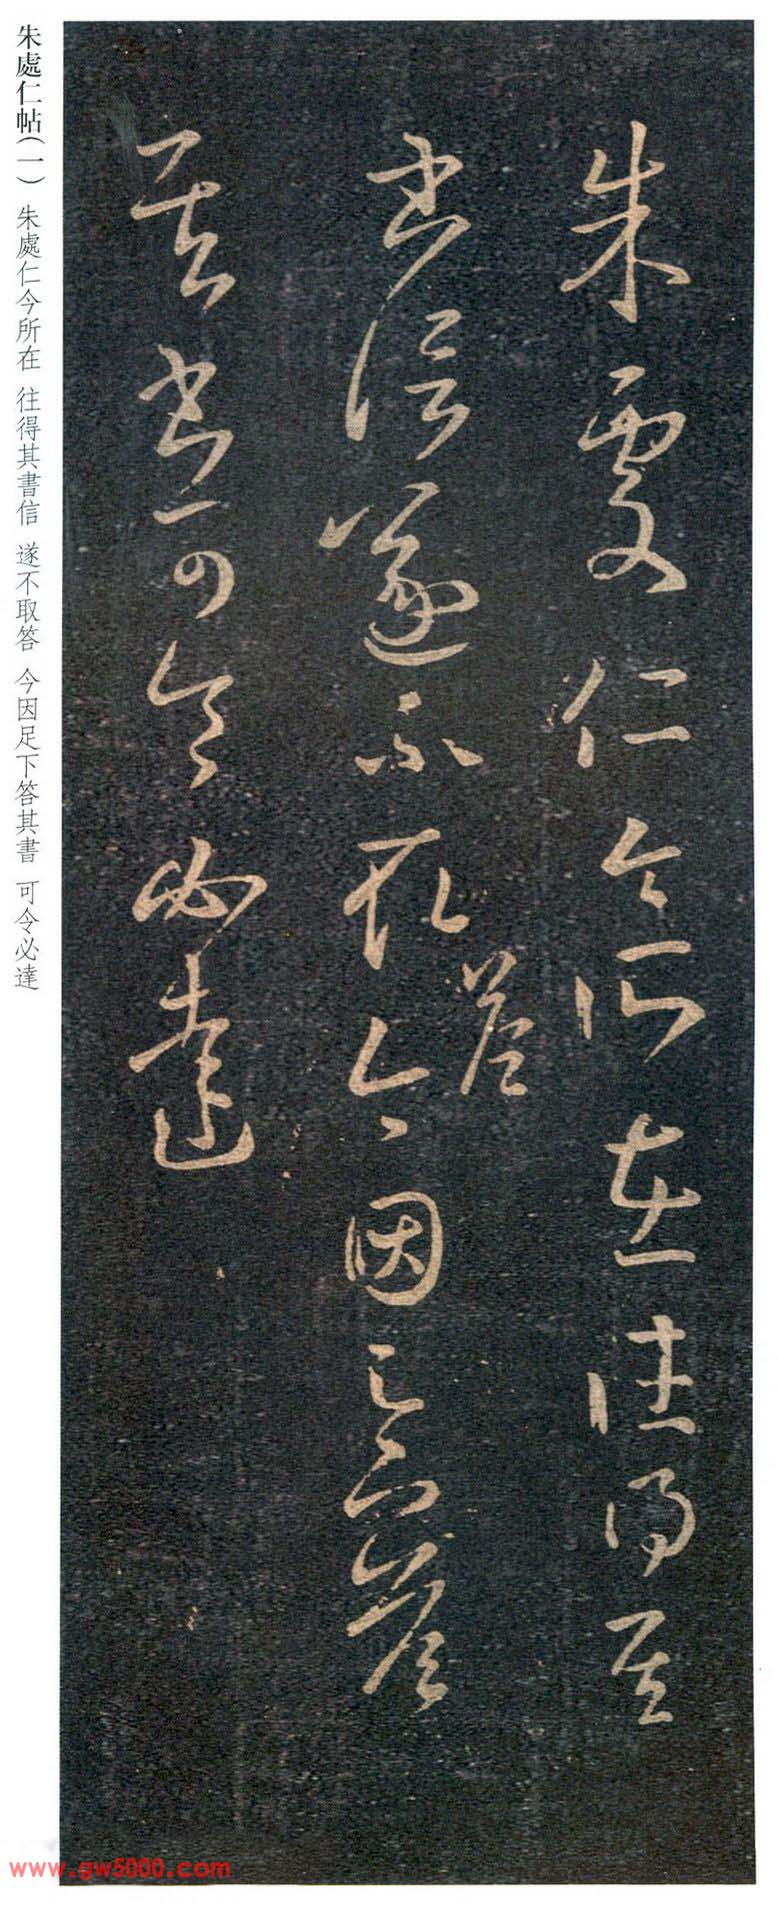 朱處仁今所在往得其
書信遂不取答今因足下答
其書可令必達
朱處仁帖（一） 朱處仁今所在 往得其書信 遂不取答 今因足下答其書 可令必達
www.gw5000.com